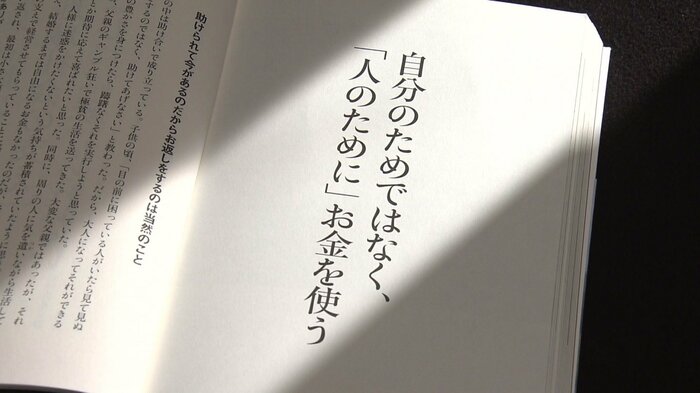 自分のためではなく、
「人のために」お金を使う
助けられて今があるのだからお返しをするのは当然のこと
の中は助け合いで成り立っている。子供の頃、「目の前に困っている人がいたら見て見ぬ
するのではなく、助けてあげなさい」と教わった。だから、大人になってそれができる
の豊かさを身につけたら、躊躇なくそれを実行しようと思っていた。
、父親のギャンブル狂いで極貧の生活を送ってきた。大変な父親ではあったが、それ
とか期待に応えて喜ばれたいと思った。同時に、周りの人に気を遣いながら生活して
人様に迷惑をかけたくないという気持ちが蓄積されていたように思
、結婚するまでは自由になるお金もなかった
支えで経営させてもらって
返され、最初は小さい